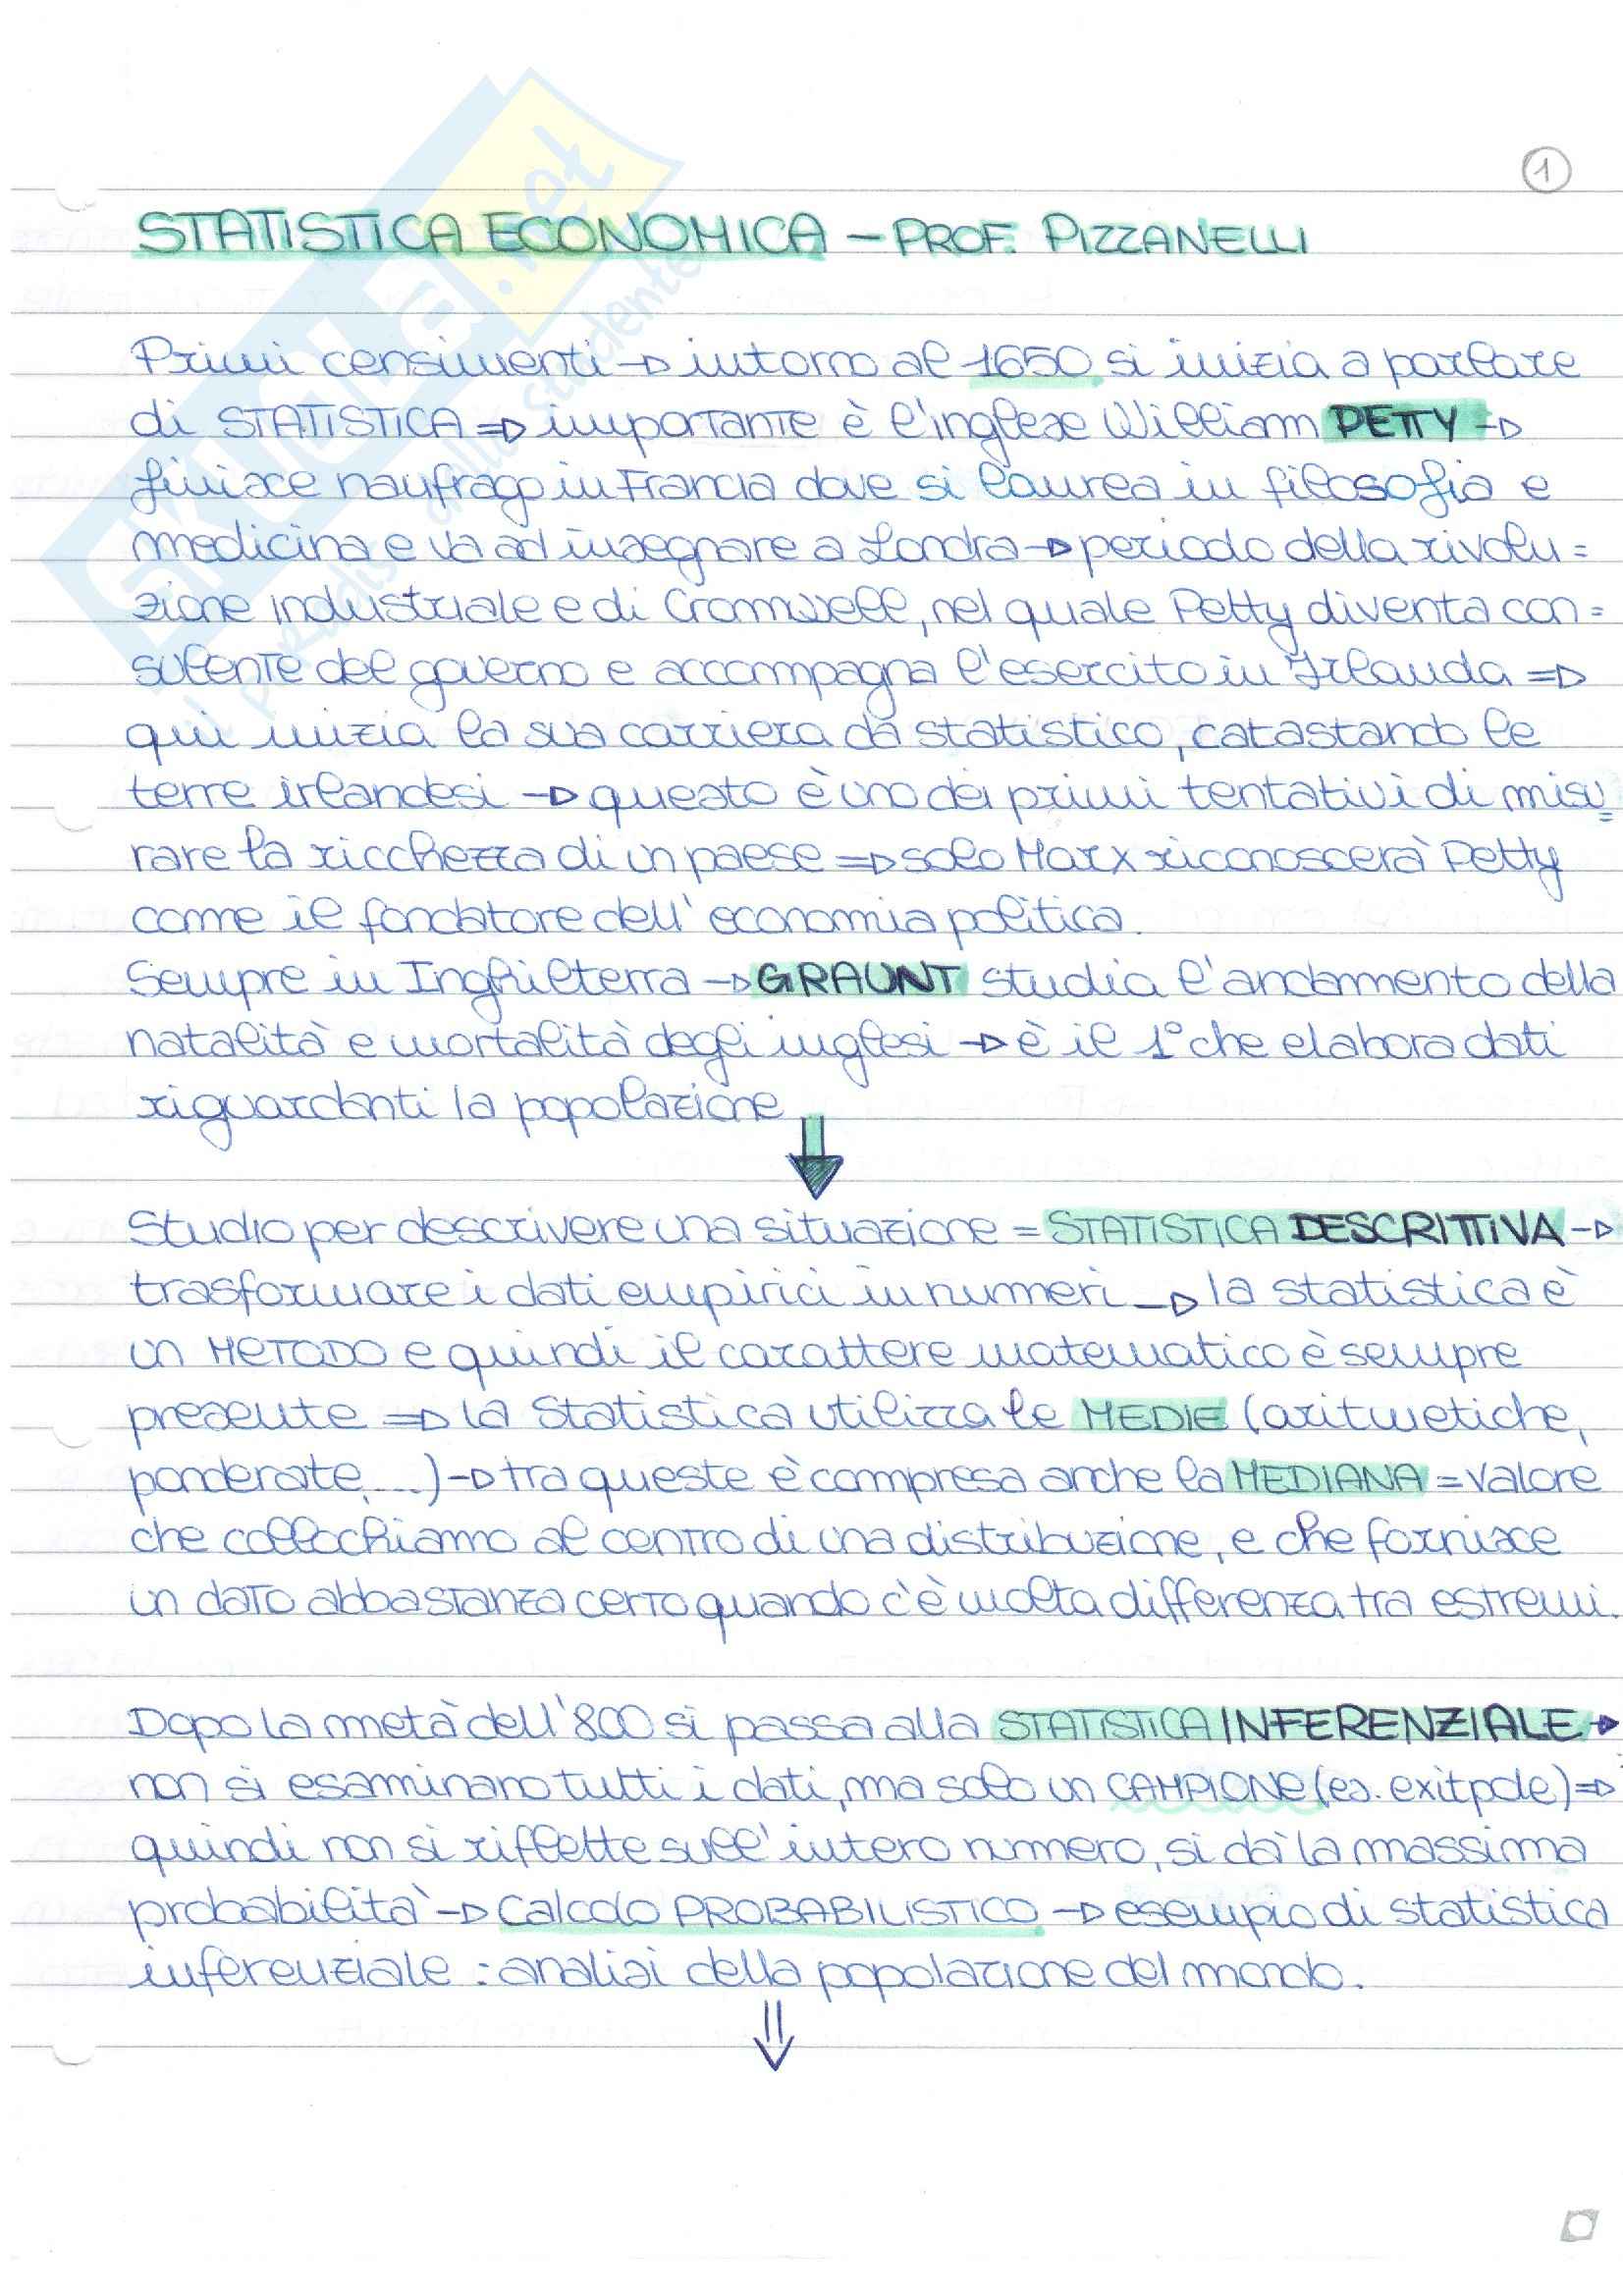 1
STATISTICA ECONOMICA – PROF. PIZZANELLI
Primi censimenti → intorno al 1650 si inizia a parlare
di STATISTICA ⇒ importante è l'inglese William PETTY →
finisce naufrago in Francia dove si laurea in filosofia e
medicina e va ad insegnare a Londra → periodo della rivolu=
zione industriale e di Cromwell, nel quale Petty diventa con=
sulente del governo e accompagna l'esercito in Irlanda ⇒
qui inizia la sua carriera da statistico, catastando le
terre irlandesi → questo è uno dei primi tentativi di misu=
rare la ricchezza di un paese ⇒ solo Marx riconoscerà Petty
come il fondatore dell'economia politica.
Sempre in Inghilterra → GRAUNT studia l'andamento della
natalità e mortalità degli inglesi → è il 1° che elabora dati
riguardanti la popolazione
↓
Studio per descrivere una situazione = STATISTICA DESCRITTIVA →
trasformare i dati empirici in numeri → la statistica è
un METODO e quindi il carattere matematico è sempre
presente ⇒ la statistica utilizza le MEDIE (aritmetiche,
ponderate, ...) → tra queste è compresa anche la MEDIANA = valore
che collochiamo al centro di una distribuzione, e che fornisce
un dato abbastanza certo quando c'è molta differenza tra estremi.
Dopo la metà dell'800 si passa alla STATISTICA INFERENZIALE →
non si esaminano tutti i dati, ma solo un CAMPIONE (es. exitpole) ⇒
quindi non si riflette sull'intero numero, si dà la massima
probabilità → Calcolo PROBABILISTICO → esempio di statistica
inferenziale : analisi della popolazione del mondo.
⇓
SKUOLA.net
il paradiso dello studente